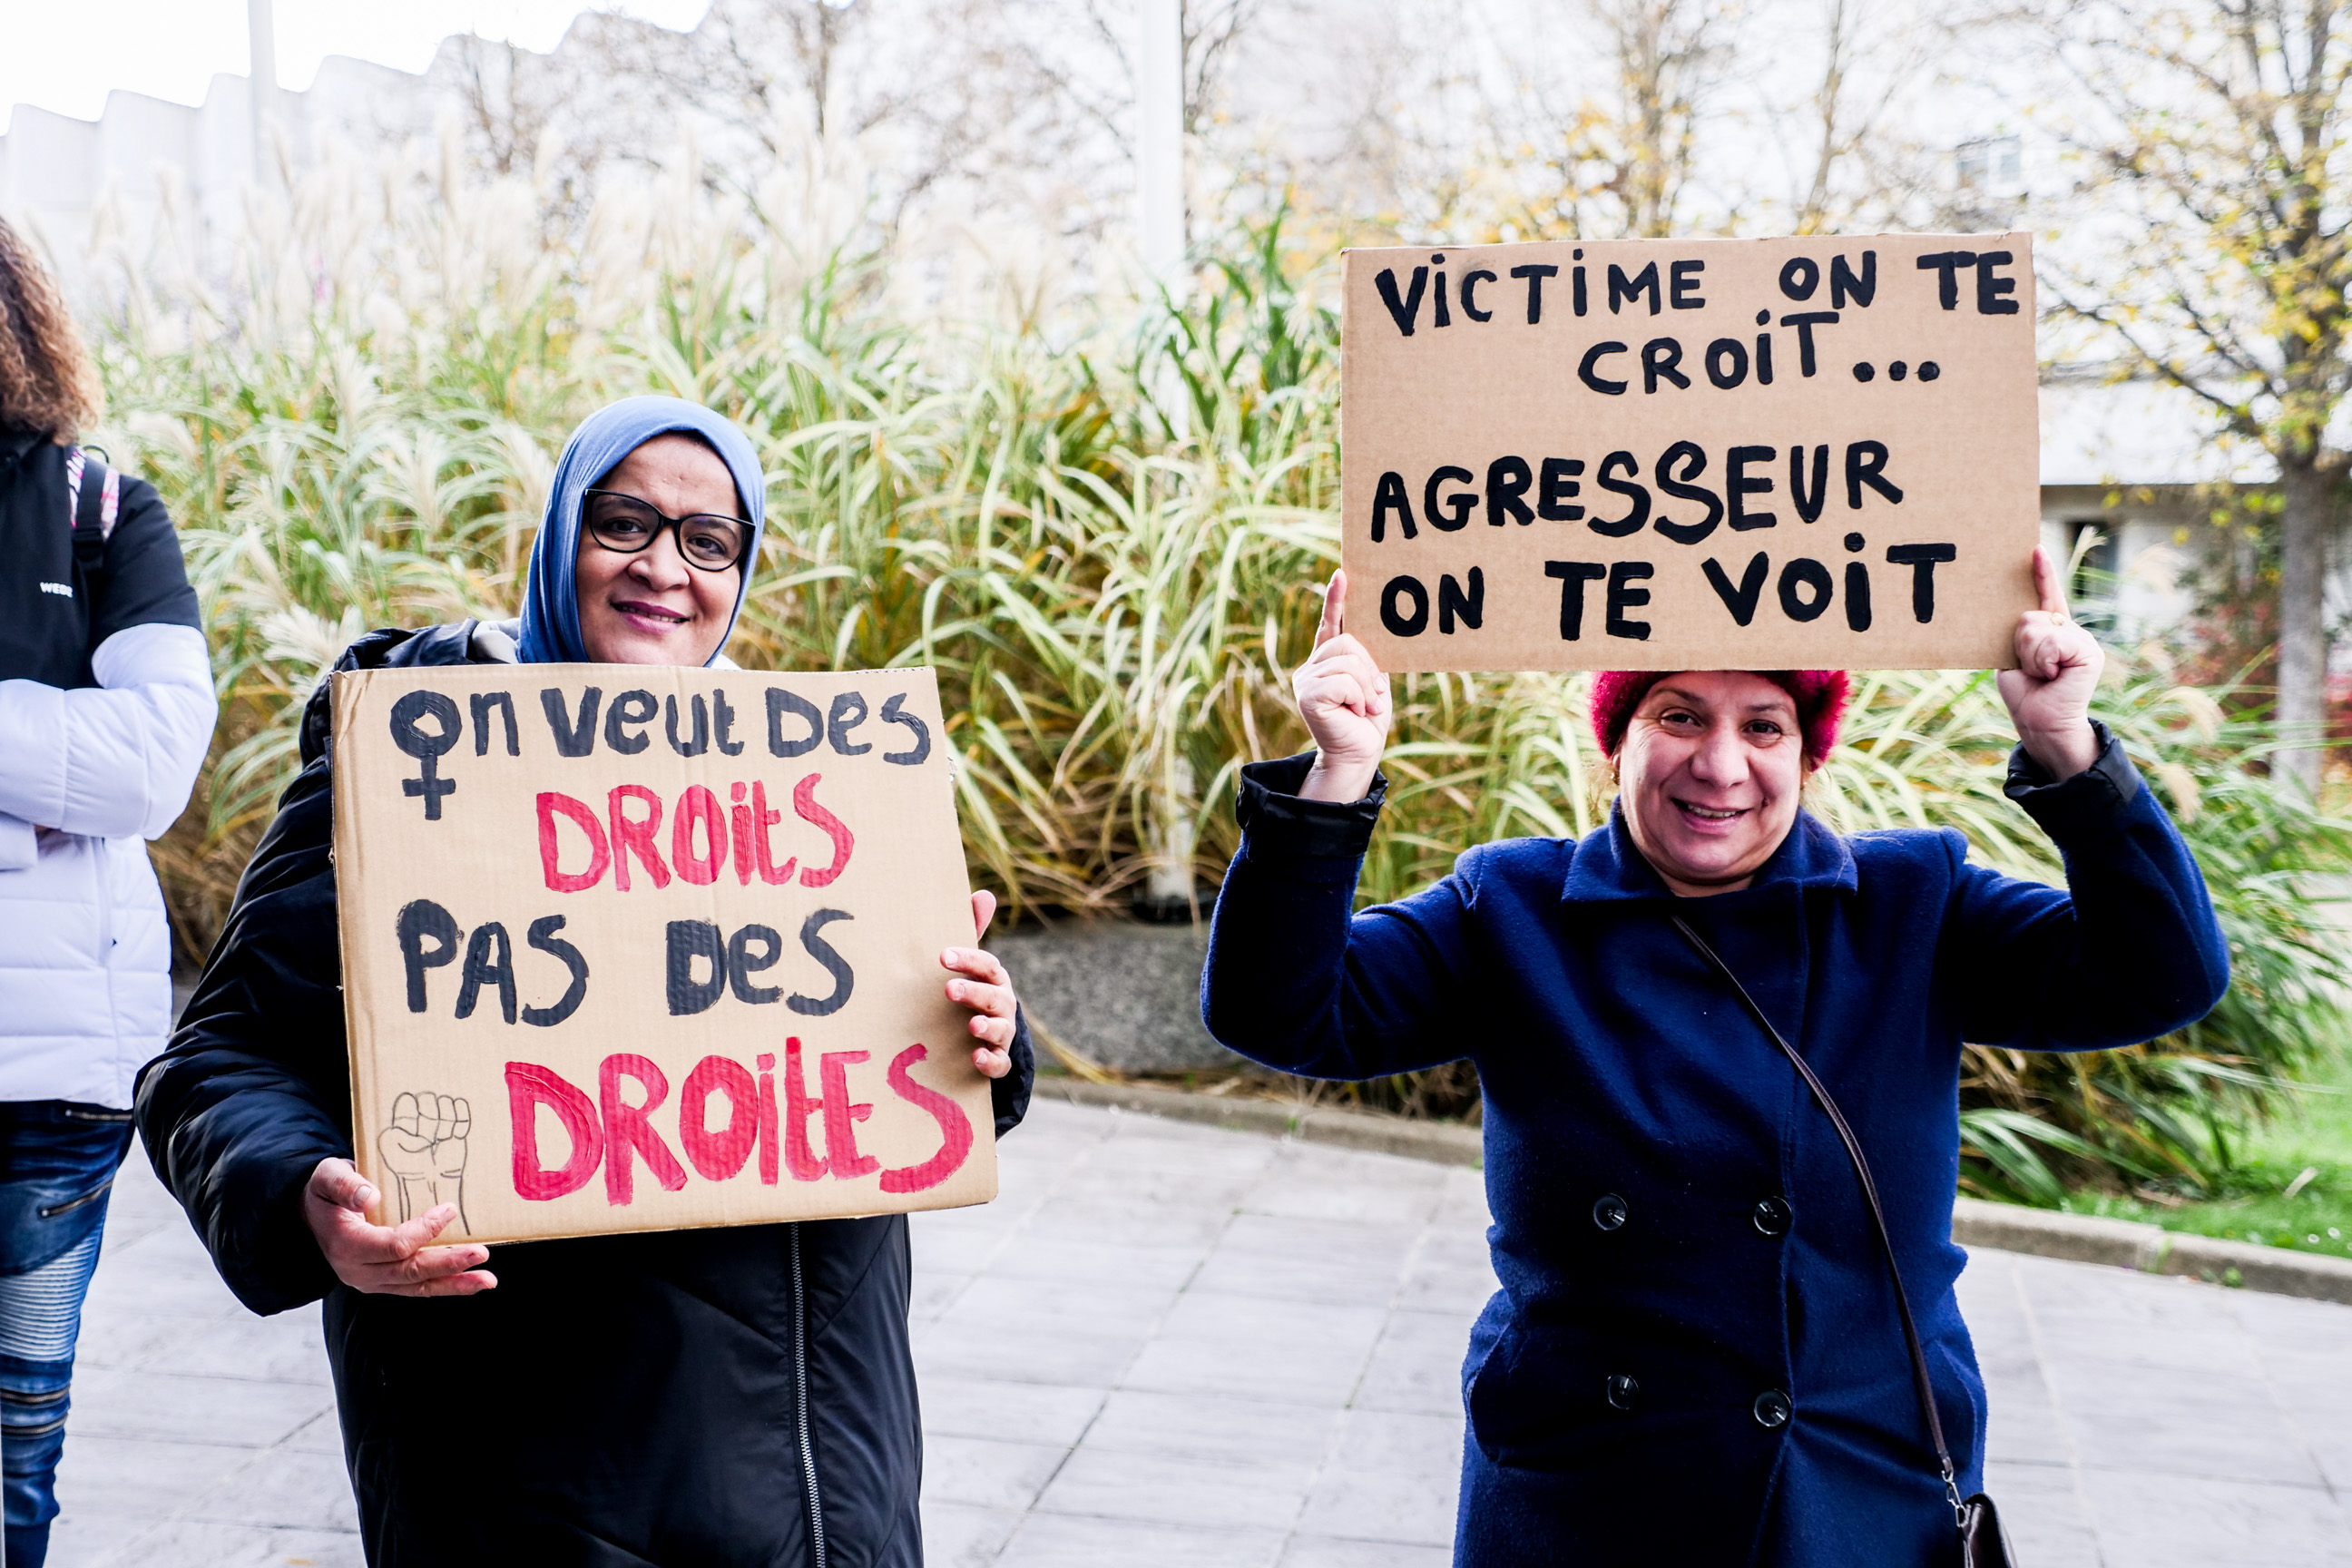 On Veut Des
DROitS
PAS DeS
DROitES
ViCTiME ON TE
CROiT...
AGRESSEUR
ON TE VOiT